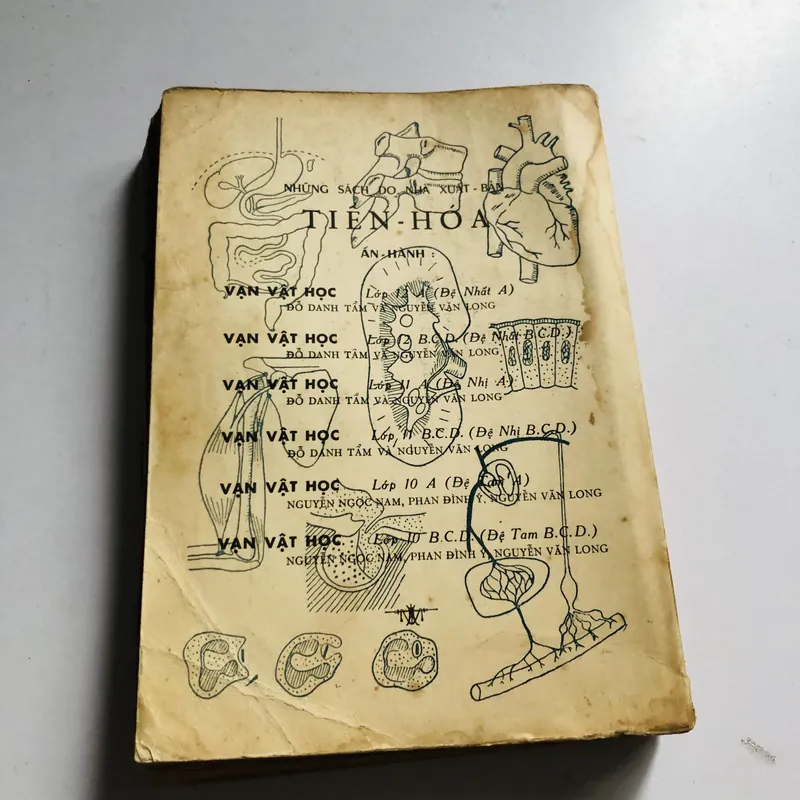 NHỮNG SÁCH DO NHÀ XUẤT-BẢN
TIẾN-HÓA
ẤN-HÀNH :
VẠN VẬT HỌC Lớp 12 A (Đệ Nhất A)
ĐỖ DANH TẨM VÀ NGUYỄN VĂN LONG
VẠN VẬT HỌC Lớp 12 B.C.D. (Đệ Nhất B.C.D.)
ĐỖ DANH TẨM VÀ NGUYỄN VĂN LONG
VẠN VẬT HỌC Lớp 11 A (Đệ Nhị A)
ĐỖ DANH TẨM VÀ NGUYỄN VĂN LONG
VẠN VẬT HỌC Lớp 11 B.C.D. (Đệ Nhị B.C.D.)
ĐỖ DANH TẨM VÀ NGUYỄN VĂN LONG
VẠN VẬT HỌC Lớp 10 A (Đệ Tam A)
NGUYỄN NGỌC NAM, PHAN ĐÌNH Ý, NGUYỄN VĂN LONG
VẠN VẬT HỌC Lớp 10 B.C.D. (Đệ Tam B.C.D.)
NGUYỄN NGỌC NAM, PHAN ĐÌNH Ý, NGUYỄN VĂN LONG